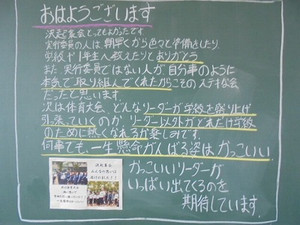 おはようございます
決起集会とってもよかったです
実行委員の人は、朝早くから色々と準備したり
学校や1年生へ教えたりとありがとう
また 実行委員ではない人が自分事のように
本気で取り組んでくれたからこその ステキな会
だったと思います。
次は体育大会、どんなリーダーが学校を盛り上げ
引っ張っていくのか、リーダー以外がどれだけ学校
のために熱くなれるか楽しみです。
何事でも、一生懸命がんばる姿はかっこいい
かっこいいリーダーが
いっぱい出てくるのを
期待しています